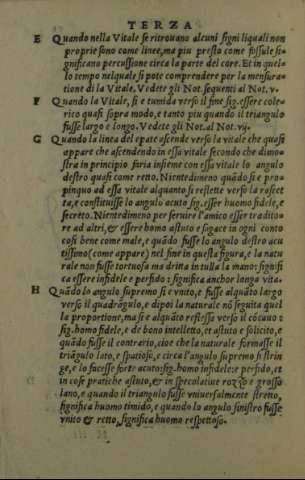 TERZA
E Quando nella Vitale se ritrouano alcuni signi liquali non
proprie sono come linee, ma piu presto come fossule si-
gnificano percussione circa la parte del core. Et in quel-
lo tempo nelquale si pote comprendere per la mensura-
tione di la Vitale. Vedete gli Not. sequenti al Not. v.
F Quando la Vitale, si e tumida verso il fine sig. essere cole-
rico quasi sopra modo, e tanto piu quando il triangulo
fusse largo e longo. Vedete gli Not. al Not. vij.
G Quando la linea del epate ascende verso la vitale che quasi
appare che ascendendo in essa vitale secondo che dimo-
stra in principio faria insieme con essa vitale lo angulo
destro quasi come retto. Nientedimeno quãdo si e pro-
pinquo ad essa vitale alquanto si reflette verso la rascet-
ta, e constituisse lo angulo acuto sig. esser huomo fidele, e
secreto. Nientedimeno per seruire l'amico esser tradito-
re ad altri, & essere homo astuto e sagace in ogni conto
cosi bene come male, e quãdo fusse lo angulo destro acu
tissimo (come appare) nel fine in questa figura, e la natu
rale non fusse tortuosa ma dritta in tulla la mano: signifi
ca essere infidele e perfido: e significa anchor longa vita.
H Quãdo lo angulo supremo si e vnito, e fusse alquãto largo
verso il quadrãgulo, e dipoi la naturale nõ seguita quel
la proportione, ma si e alquãto reflessa verso il cõcauo:
sig. homo fidele, e de bono intelletto, et astuto e solicito, e
quãdo fusse il contrario, cioe che la naturale formasse il
triãgulo lato, e spatioso, e circa l'angulo supremo si strin
ge, e lo facesse forte acuto: sig. homo infidele: e perfido, et
in cose pratiche astuto, & in speculatiue rozzo e grosso
lano, e quando il triangulo fusse vniuersalmente stretto,
significa huomo timido, e quando lo angulo sinistro fusse
vnito & retto, significa huomo respettoso.